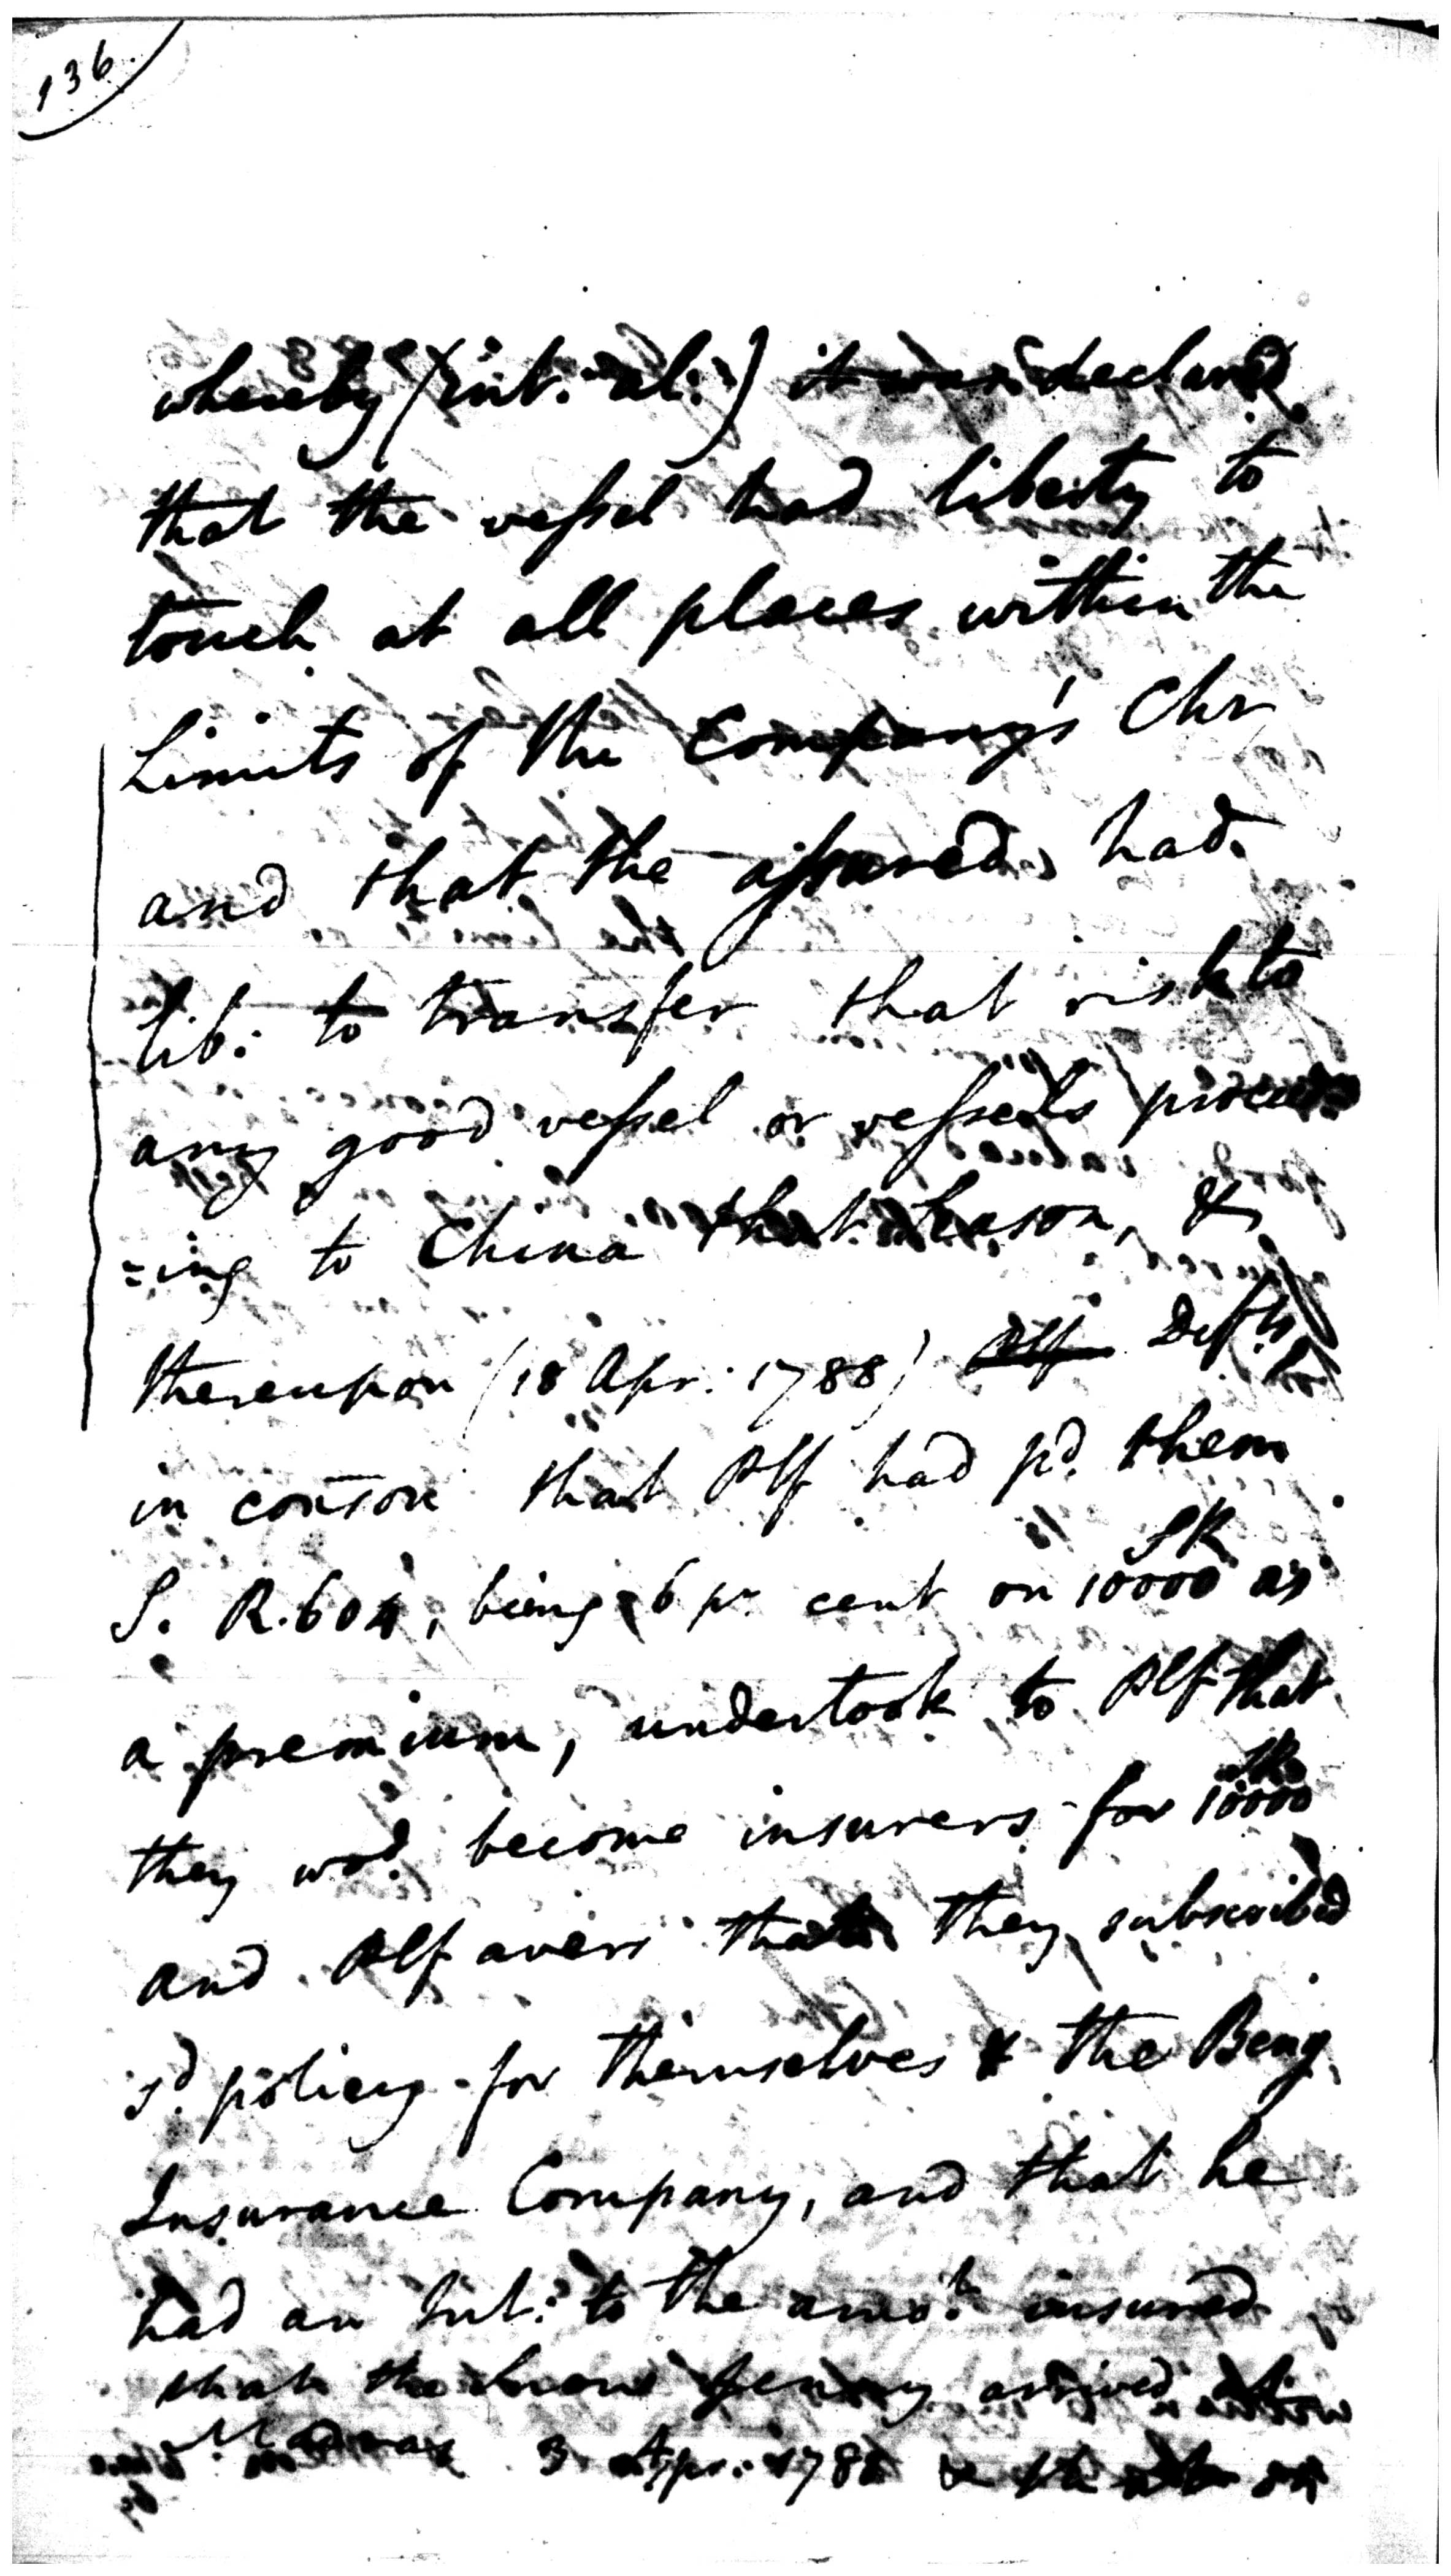 136.
whereby (int: al:) it was declared
that the vessel had liberty to
touch at all places within the
Limits of the Company's Chr
and that the assured had
lib: to transfer that risk to
any good vessel or vessels proceed
=ing to China that Season, &
thereupon (18 Apr: 1788) Plf Defts
in conson that Plf had pd. them
S. R. 604, being 6 pr cent on 10000 SR as
a premium, undertook to Plf that
they wod. become insurers for 10000 SR
and Plf avers that they subscribed
sd. policy for themselves & the Beng
Insurance Company, and that he
had an Int: to the amot. insured
that the arrived
Madras 3 Apr: 1788 &